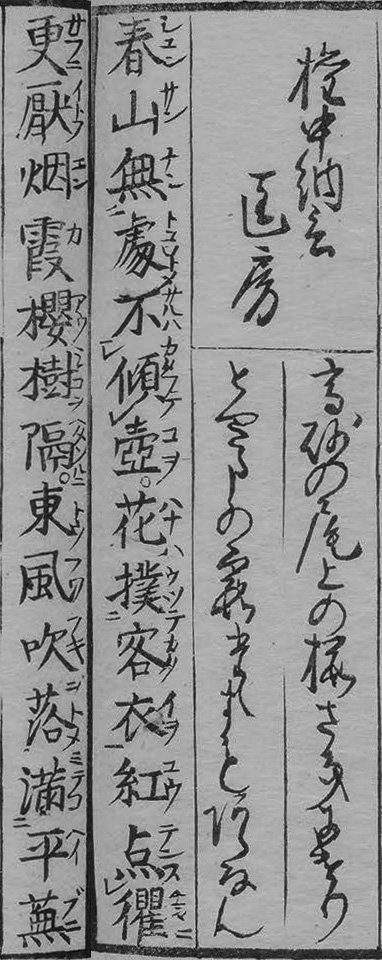 権中納言
匡房
高砂の尾上の桜さきにけり
とやまの霞たゝすもあらなん
春山無處不傾壺。花撲客衣紅点衢
更厭烟霞櫻樹隔。東風吹落滿平蕪